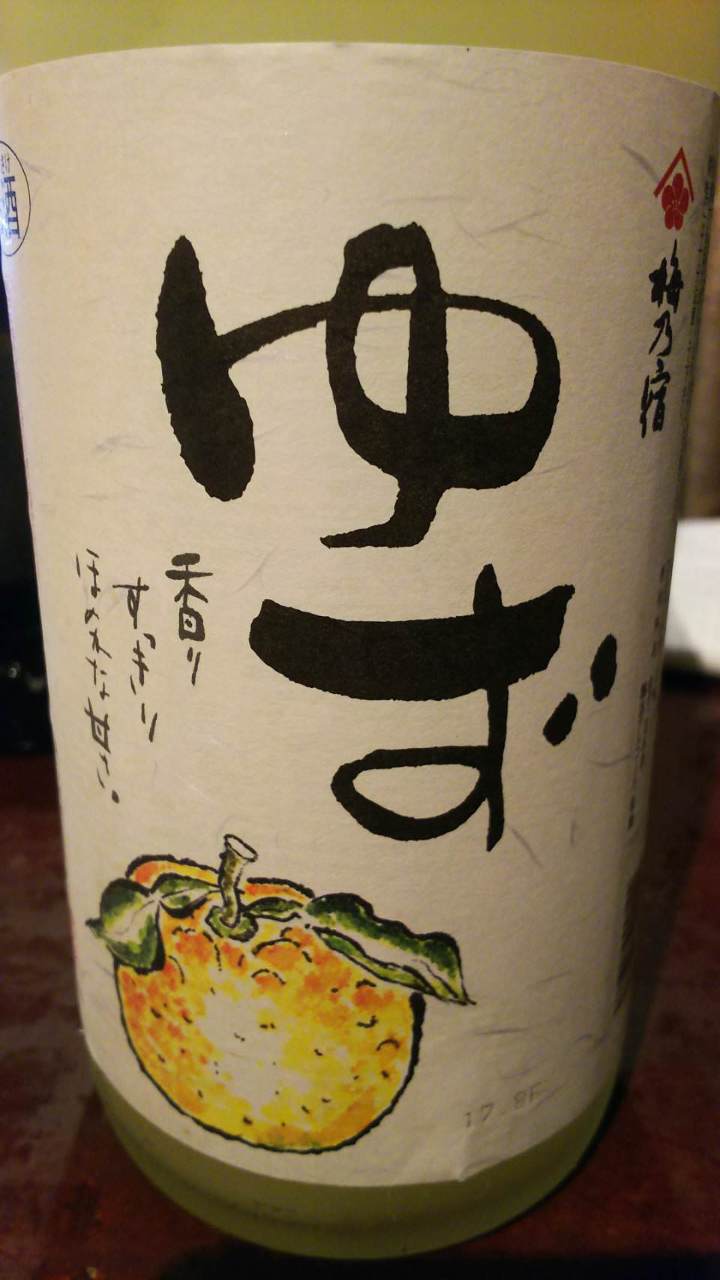 梅乃宿
ゆず
香り
すっきり
ほのかな甘さ。
17.8F